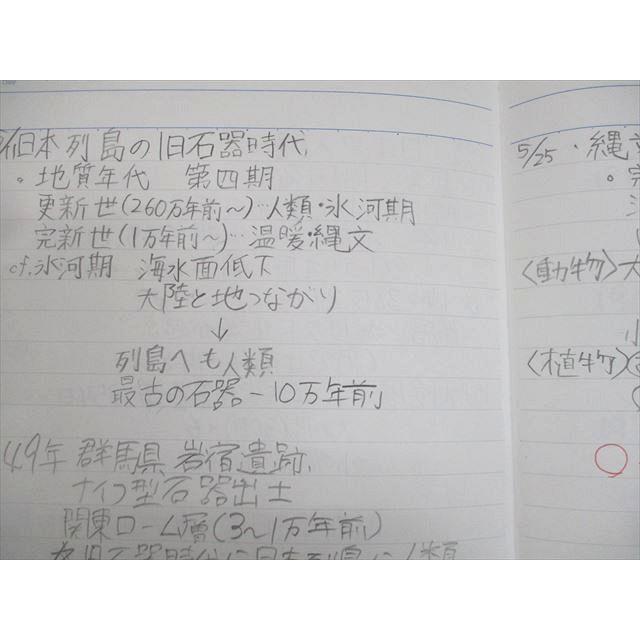 日本列島の旧石器時代
。地質年代 第四期
更新世(260万年前〜)…人類・氷河期
完新世(1万年前〜)…温暖・縄文
cf.氷河期 海水面低下
大陸と地つながり
↓
列島へも人類
最古の石器-10万年前
49年 群馬県 岩宿遺跡
ナイフ型石器出土
関東ローム層(3〜1万年前)
旧石器時代に日本列島に人類
5/25・縄文
。完
〈動物〉大
小
〈植物〉